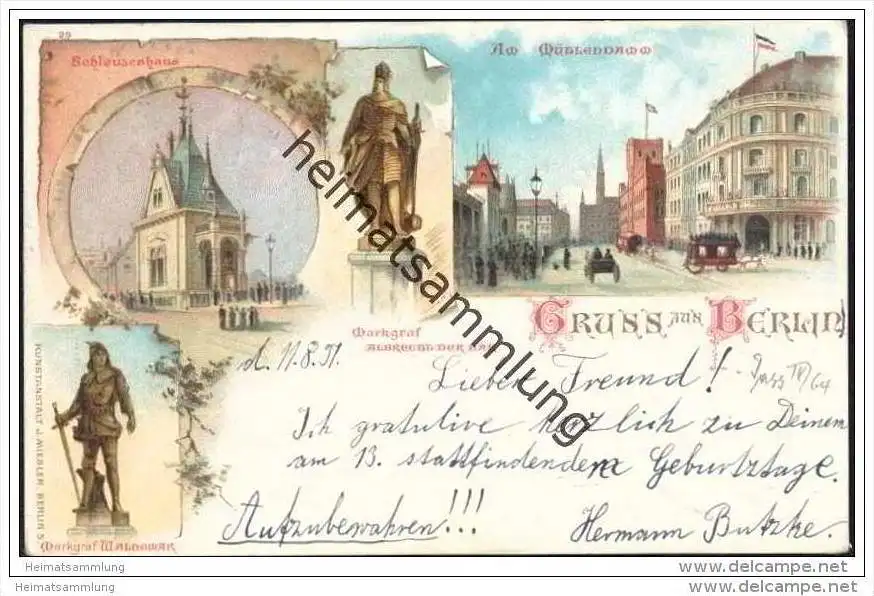 29
Schleusenhaus
Am Mühlendamm
Markgraf
Albrecht der
Gruss aus Berlin
d. 11.8.
Lieber Freund!
Ich gratulire herzlich zu Deinem
am 13. stattfindenden Geburtztage.
Aufzubewahren!!!
Hermann Butzke.
Markgraf Waldemar
Kunstanstalt J. Miesler, Berlin S.
heimatsammlung
Heimatsammlung
Heimatsammlung
www.delcampe.net
www.delcampe.net